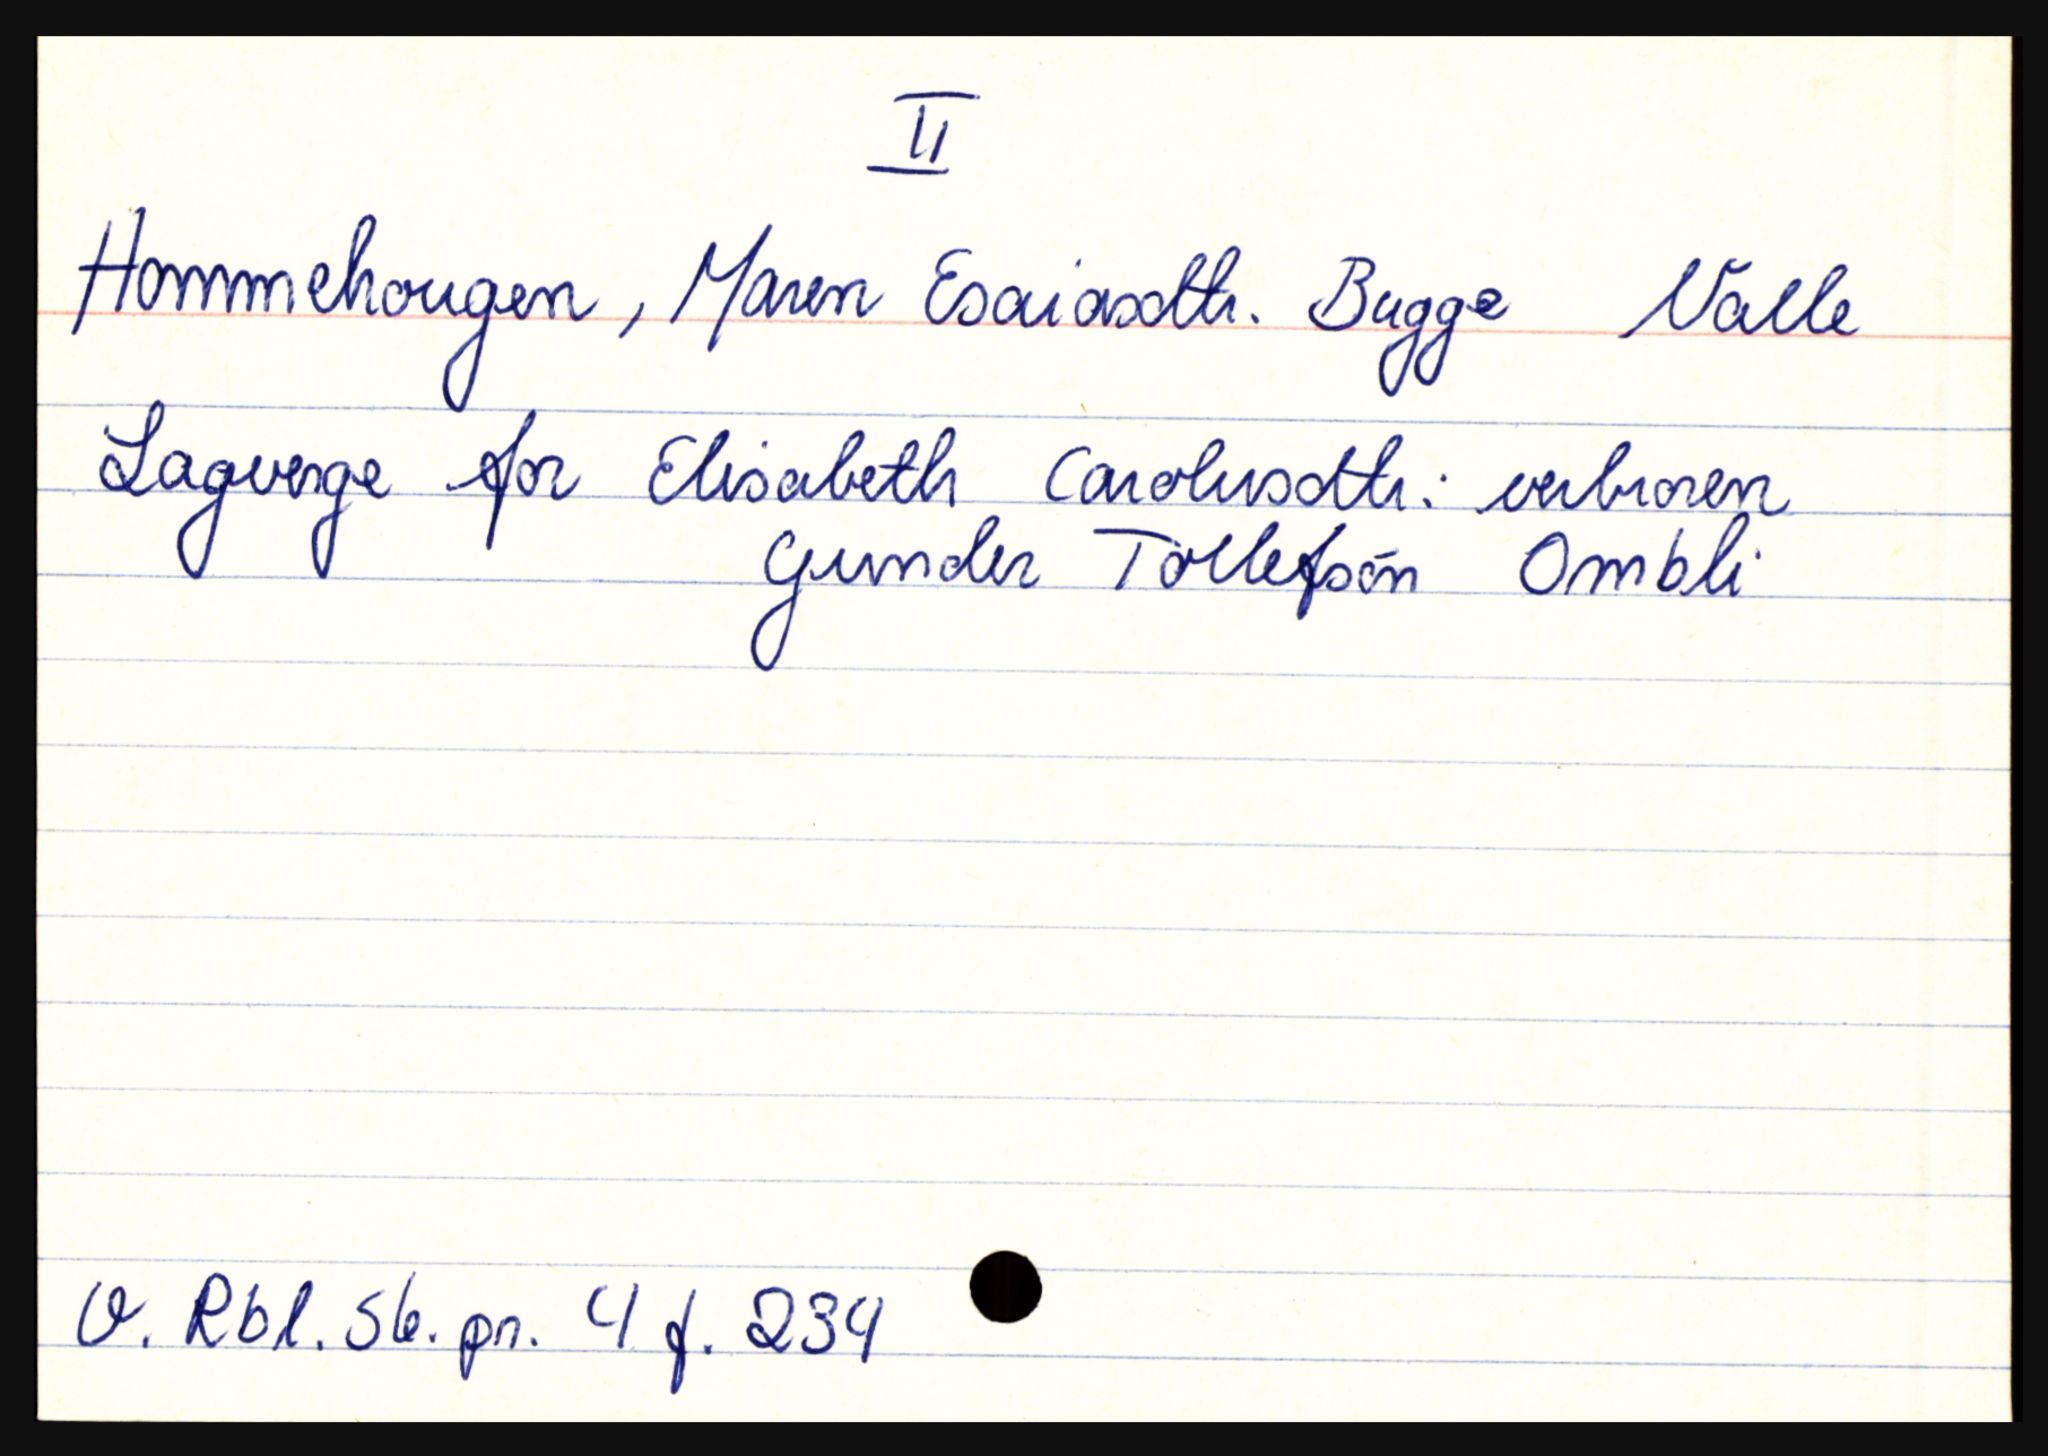 II
Hommehougen, Maren Esaiasdtr. Bugge Valle
Lagverge for Elisabeth Carolusdtr: verbroren
Gunder Tollefsøn Ombli
V. Rbl. Sk. pr. 4 f. 234